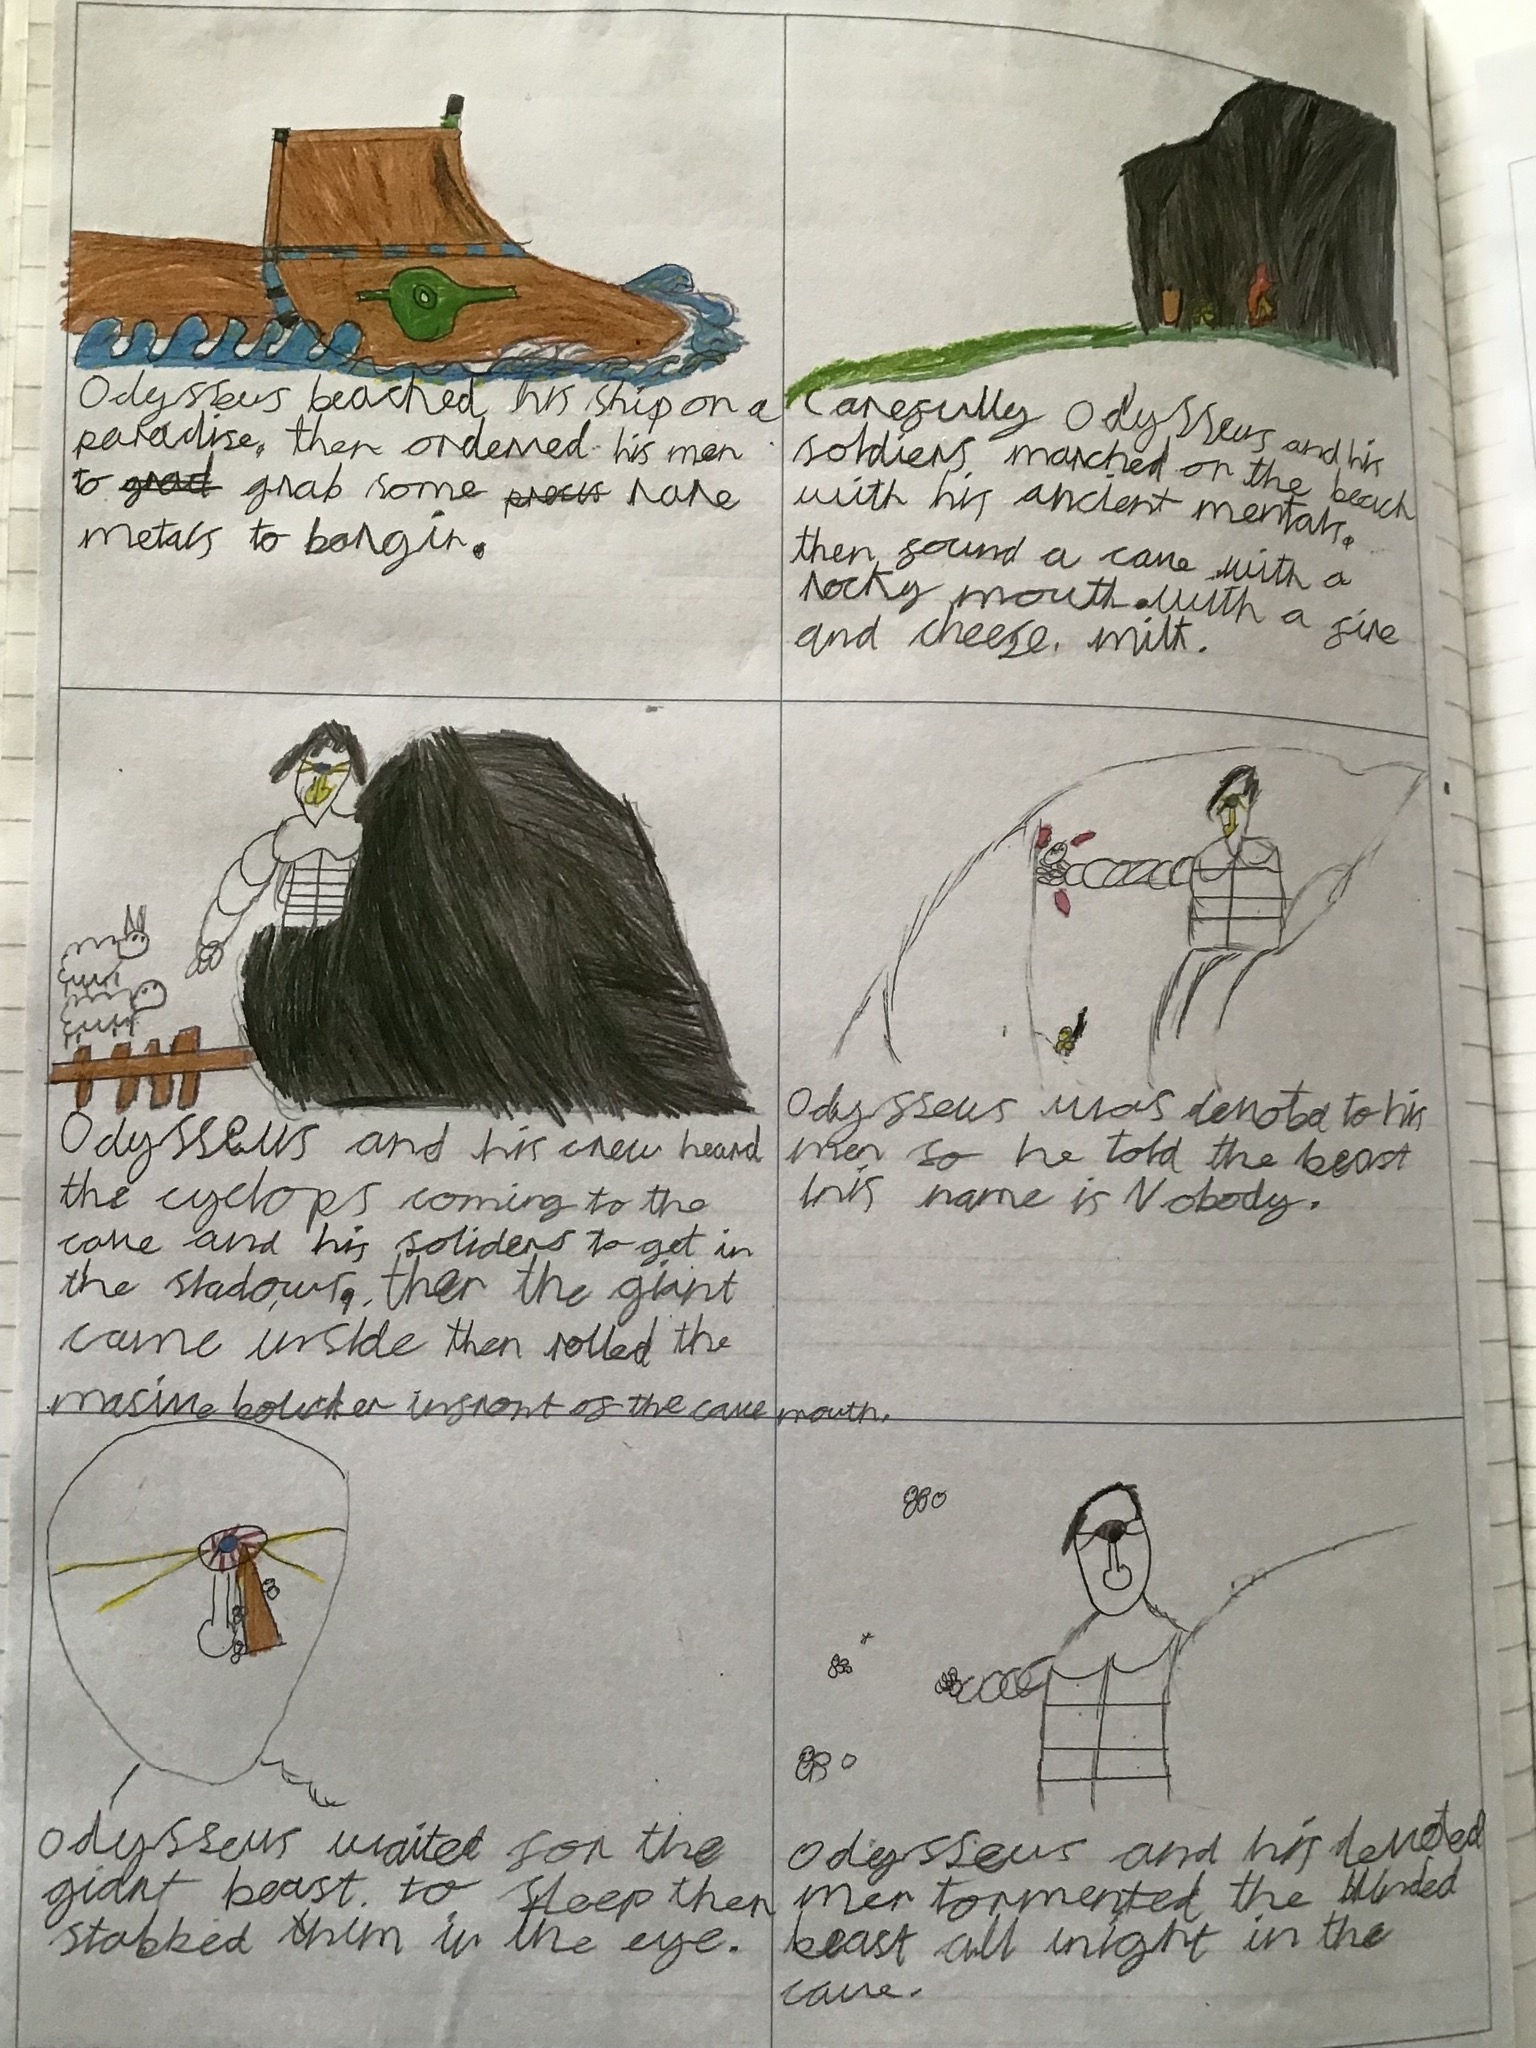 Odysseus beached his ship on a
paradise, then ordered his men
to grad grab some rare
metals to bargin.
Carefully Odysseus and his
soldiers marched on the beach
with his ancient mentals.
then found a cave with a
rocky mouth. with a fire
and cheese. milk.
Odysseus and his crew heard
the cyclops coming to the
cave and his soliders to get in
the shadows, then the giant
came inside then rolled the
masive boulder infront of the cave mouth.
Odysseus was devoted to his
men so he told the beast
his name is Nobody.
Odysseus waited for the
giant beast. to sleep then
stabbed them in the eye.
Odysseus and his devoted
men tormented the blinded
beast all night in the
cave.